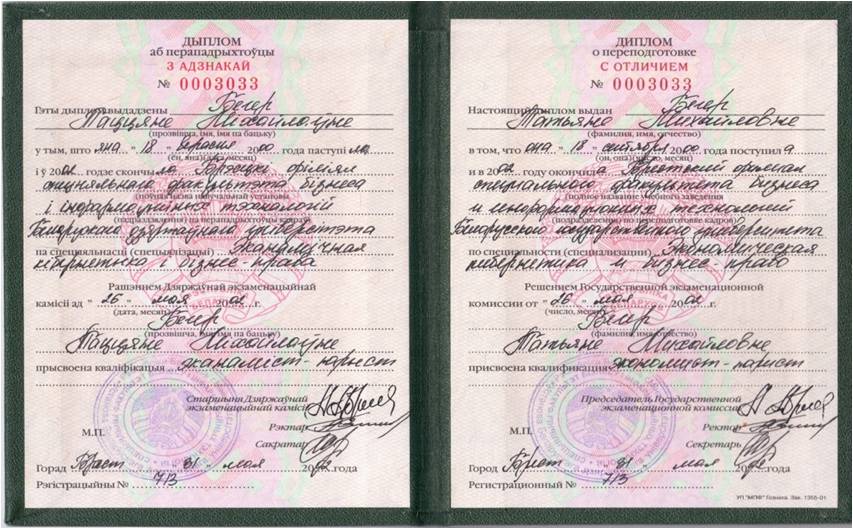 ДЫПЛОМ
аб перападрыхтоўцы
З АДЗНАКАЙ
№ 0003033
Гэты дыплом выдадзены Бегер
Таццяне Міхайлаўне
(прозвішча, імя, імя па бацьку)
у тым, што яна "18" верасня 2000 года паступіла
(ён, яна) (дата, месяц)
і ў 2002 годзе скончыла Брэсцкі філіял
спецыяльнага факультэта бізнеса
(поўная назва навучальнай установы
і інфармацыйных тэхналогій
(падраздзялення) па перападрыхтоўцы кадраў)
Беларускага дзяржаўнага ўніверсітэта
па спецыяльнасці (спецыялізацыі) эканамічная
кібернетыка і бізнес-права
Рашэннем Дзяржаўнай экзаменацыйнай
камісіі ад "26" мая 2002 г.
(дата, месяц)
Бегер
(прозвішча, імя, імя па бацьку)
Таццяне Міхайлаўне
прысвоена кваліфікацыя эканаміст-юрыст
Старшыня Дзяржаўнай
экзаменацыйнай камісіі
Рэктар
М.П.
Сакратар
Горад Брэст "31" мая 2002 года
Рэгістрацыйны № 713
ДИПЛОМ
о переподготовке
С ОТЛИЧИЕМ
№ 0003033
Настоящий диплом выдан Бегер
Татьяне Михайловне
(фамилия, имя, отчество)
в том, что она "18" сентября 2000 года поступила
(он, она) (число, месяц)
и в 2002 году окончила Брестский филиал
специального факультета бизнеса
(полное название учебного заведения
и информационных технологий
(подразделения) по переподготовке кадров)
Белорусского государственного университета
по специальности (специализации) экономическая
кибернетика и бизнес-право
Решением Государственной экзаменационной
комиссии от "26" мая 2002 г.
(число, месяц)
Бегер
(фамилия, имя, отчество)
Татьяне Михайловне
присвоена квалификация экономист-юрист
Председатель Государственной
экзаменационной комиссии
Ректор
М.П.
Секретарь
Город Брест "31" мая 2002 года
Регистрационный № 713
УП "МПФ" Гознака. Зак. 1355-01.